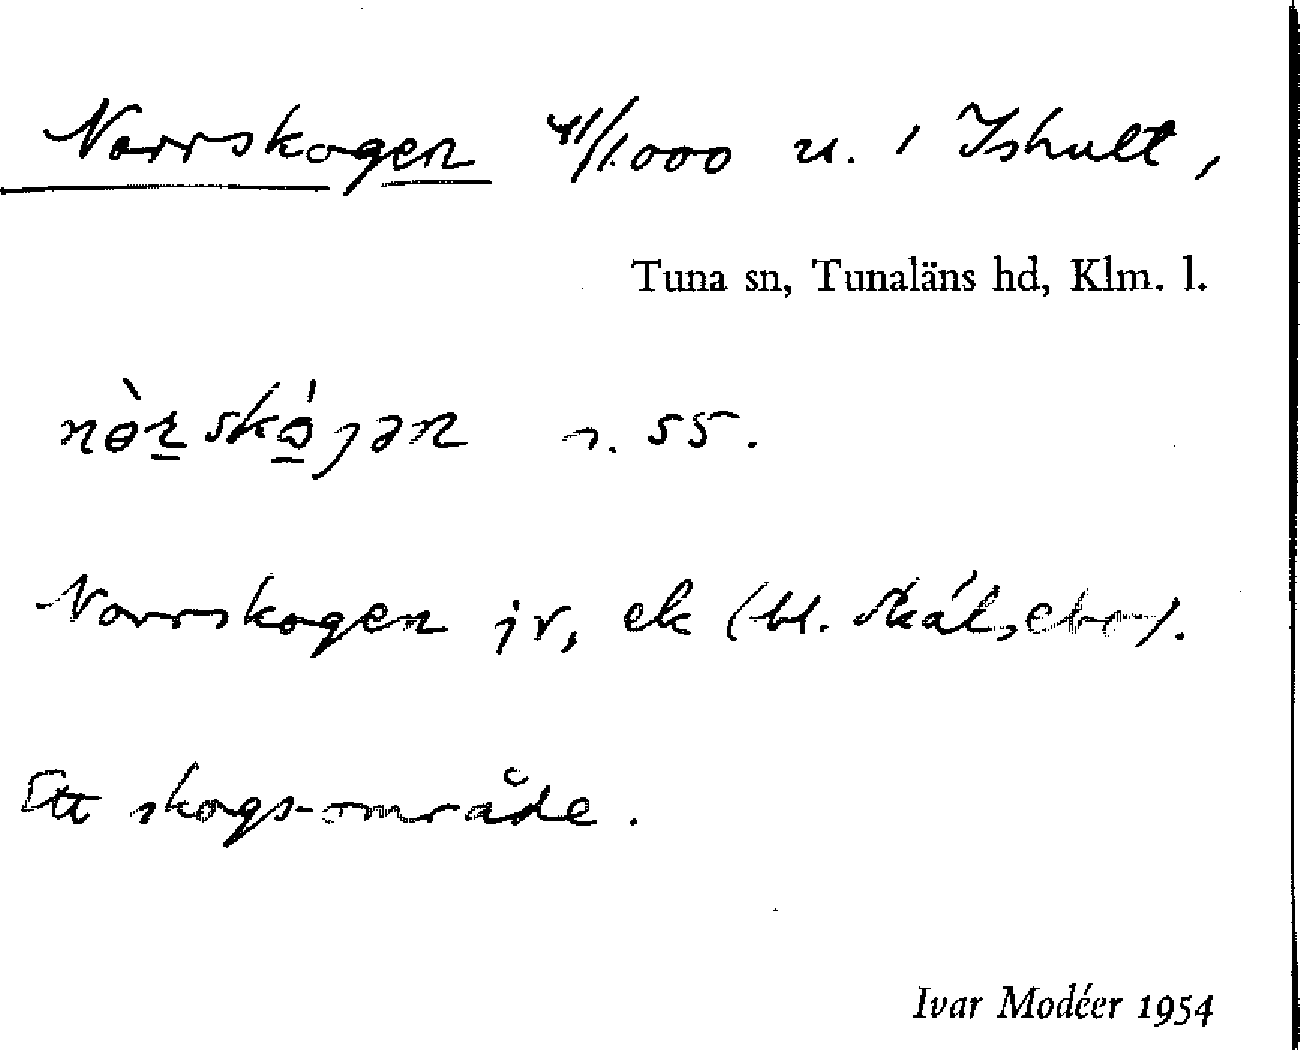 Norrskogen 41/1.000 u. 1 Ishult,
Tuna sn, Tunaläns hd, Klm. l.
s. 55.
Norrskogen jr, ek (bl.
Ett skogs-område.
Ivar Modéer 1954